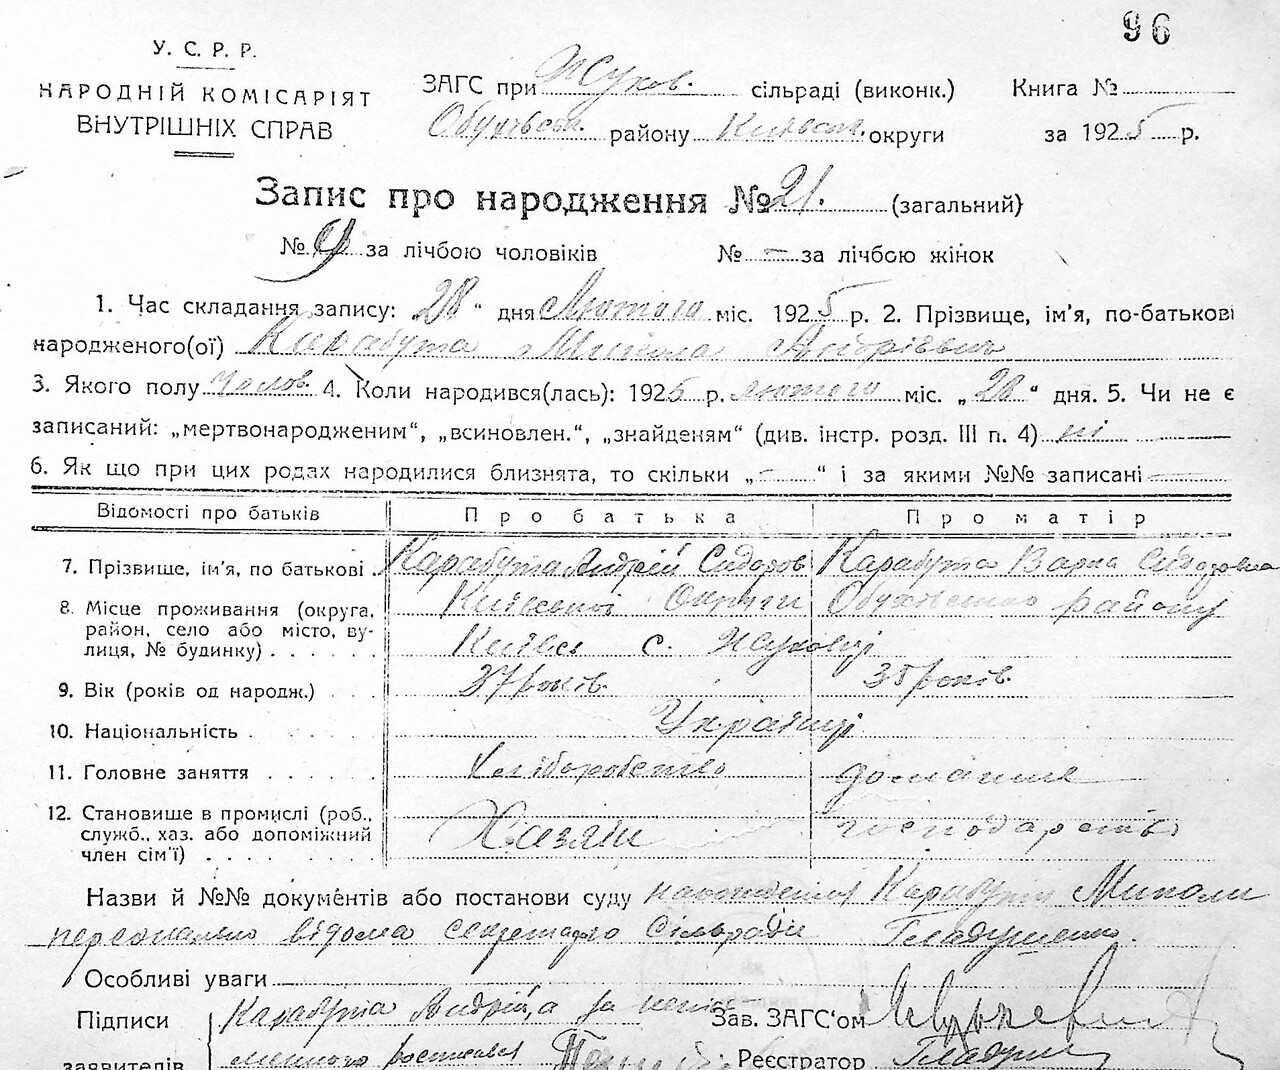 96
У. С. Р. Р.
НАРОДНІЙ КОМІСАРІЯТ
ВНУТРІШНІХ СПРАВ
ЗАГС при Жуков. сільраді (виконк.) Книга №
Обухівськ. району Київськ. округи за 1925 р.
Запис про народження № 21. (загальний)
№ 9 за лічбою чоловіків № — за лічбою жінок
1. Час складання запису: 28 " дня Лютого міс. 1925 р. 2. Прізвище, ім'я, по-батькові
народженого(ої) Карабута Микола Андрієвич
3. Якого полу Чолов. 4. Коли народився(лась): 1925 р. лютого міс. „ 28 " дня. 5. Чи не є
записаний: „мертвонародженим", „всиновлен.", „знайденям" (див. інстр. розд. III п. 4) ні
6. Як що при цих родах народилися близнята, то скільки „ — " і за якими №№ записані —
Відомості про батьків Про батька Про матір
7. Прізвище, ім'я, по батькові . Карабута Андрій Сидоров Карабута Варка Сидоровна
8. Місце проживання (округа, район, село або місто, вулиця, № будинку) . . . . . Київської Округи Обухівсько району
с. Жуковці
9. Вік (років од народж.) . . . 37 років. 35 років.
10. Національність . . . . . . Українці
11. Головне заняття . . . . . . хліборобство домашнє
12. Становище в промислі (роб., служб., хаз. або допоміжний член сім'ї) . . . . . . . Хазяїн господарство
Назви й №№ документів або постанови суду Карабути Миколи
персонально відома секретарю Сільради Гладушенко.
Особливі уваги
Підписи Карабута Андрій, а за Зав. ЗАГС'ом
заявителів Реєстратор